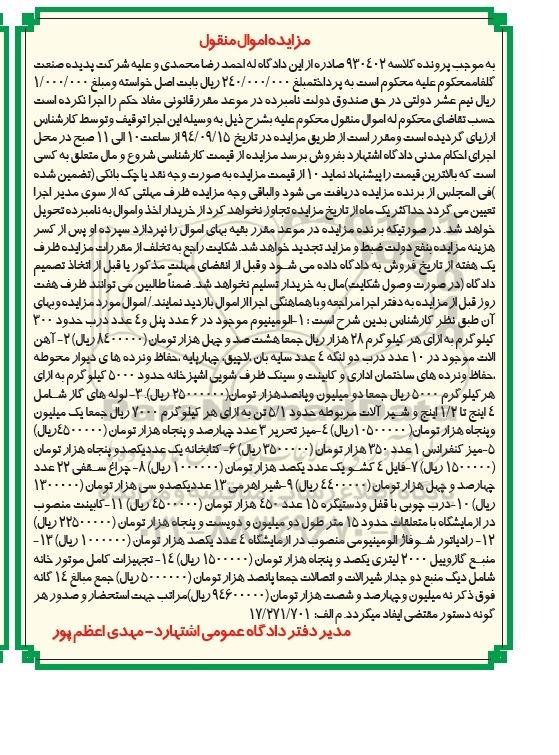 مزایده اموال منقول
به موجب پرونده کلاسه ۹۳۰۴۰۲ صادره از این دادگاه له احمد رضا محمدی و علیه شرکت پدیده صنعت
گلفام محکوم علیه محکوم است به پرداخت مبلغ ۲۴۰/۰۰۰/۰۰۰ ریال بابت اصل خواسته و مبلغ ۱/۰۰۰/۰۰۰
ریال نیم عشر دولتی در حق صندوق دولت نامبرده در موعد مقرر قانونی مفاد حکم را اجرا نکرده است
حسب تقاضای محکوم له اموال منقول محکوم علیه بشرح ذیل به وسیله این اجرا توقیف و توسط کارشناس
ارزیابی گردیده است و مقرر است از طریق مزایده در تاریخ ۹۴/۰۹/۱۵ از ساعت ۱۰ الی ۱۱ صبح در محل
اجرای احکام مدنی دادگاه اشتهارد بفروش برسد مزایده از قیمت کارشناسی شروع و مال متعلق به کسی
است که بالاترین قیمت را پیشنهاد نماید ۱۰ از قیمت مزایده به صورت وجه نقد یا چک بانکی (تضمین شده
)فی المجلس از برنده مزایده دریافت می شود و الباقی وجه مزایده ظرف مهلتی که از سوی مدیر اجرا
تعیین می گردد حداکثر یک ماه از تاریخ مزایده تجاوز نخواهد کرد از خریدار اخذ و اموال به نامبرده تحویل
خواهد شد. در صورتیکه برنده مزایده در موعد مقرر بقیه بهای اموال را نپردازد سپرده او پس از کسر
هزینه مزایده بنفع دولت ضبط و مزاید تجدید خواهد شد. شکایت راجع به تخلف از مقررات مزایده ظرف
یک هفته از تاریخ فروش به دادگاه داده می شود وقبل از انقضای مهلت مذکور یا قبل از اتخاذ تصمیم
دادگاه (در صورت وصول شکایت)مال به خریدار تسلیم نخواهد شد. ضمناً طالبین می توانند ظرف هفت
روز قبل از مزایده به دفتر اجرا مراجعه و با هماهنگی اجرا از اموال بازدید نمایند./ اموال مورد مزایده و بهای
آن طبق نظر کارشناس بدین شرح است : ۱-آلومینیوم موجود در ۶ عدد پنل و۴ عدد درب حدود ۳۰۰
کیلو گرم به ازای هر کیلو گرم ۲۸ هزار ریال جمعا هشت صد و چهل هزار تومان (۸۴۰۰۰۰۰ ریال) ۲- آهن
الات موجود در ۱۰ عدد درب دو لنگه ۴ عدد سایه بان ،لاچیق ،چهارپایه ،حفاظ ونرده ها ی دیوار محوطه
،حفاظ ونرده های ساختمان اداری و کابینت و سینک ظرف شویی اشپزخانه حدود ۵۰۰۰ کیلو گرم به ازای
هر کیلو گرم ۵۰۰۰ ریال جمعا دو میلیون وپانصدهزار تومان(۲۵۰۰۰۰۰۰ ریال). ۳- لوله های گاز شـامل
۴ اینچ تا ۱/۲ اینچ و شـیر آلات مربوطه حدود ۱/۵ تن به ازای هر کیلو گرم ۷۰۰۰ ریال جمعا یک میلیون
وپنجاه هزار تومان (۱۰۵۰۰۰۰۰ ریال) ۴-میز تحریر ۳ عدد چهارصد و پنجاه هزار تومان (۴۵۰۰۰۰۰ریال)
۵-میز کنفرانس ۱ عدد ۳۵۰ هزار تومان (۳۵۰۰۰۰۰ ریال) ۶- کتابخانه یک عددیکصدو پنجاه هزار تومان
(۱۵۰۰۰۰۰ ریال) ۷-فایل ۴ کشـو یک عدد یکصد هزار تومان (۱۰۰۰۰۰۰ ریال) ۸-چراغ سـقفی ۲۲ عدد
چهارصد و چهل هزار تومان (۴۴۰۰۰۰۰ ریال) ۹-شیر اهرمی ۱۳ عددیکصدو سی هزار تومان (۱۳۰۰۰۰۰
ریال) ۱۰-درب چوبی با قفل ودستگیره ۱۵ عدد ۴۵۰ هزار تومان (۴۵۰۰۰۰۰ ریال) ۱۱-کابینت منصوب
در ازمایشگاه با متعلقات حدود ۱۵ متر طول دو میلیون و دویست و پنجاه هزار تومان (۲۲۵۰۰۰۰۰ ریال)
۱۲- رادیاتور شـوفاژ الومینیومی منصوب در ازمایشگاه ۴ عدد یکصد هزار تومان (۱۰۰۰۰۰۰ ریال) ۱۳-
منبـع گازوییل ۲۰۰۰ لیتری یکصد و پنجاه هزار تومان (۱۵۰۰۰۰۰ ریال) ۱۴- تجهیزات کامل موتور خانه
شامل دیگ منبع دو جدار شیرالات و اتصالات جمعا پانصد هزار تومان (۵۰۰۰۰۰۰ ریال) جمع مبالغ ۱۴ گانه
فوق ذکر نه میلیون وچهارصد و شصت هزار تومان(۹۴۶۰۰۰۰۰ ریال)مراتب جهت استحضار و صدور هر
گونه دستور مقتضی ایفاد میگردد.م الف: ۱۷/۲۷۱/۷۰۱
مدیر دفتر دادگاه عمومی اشتهارد - مهدی اعظم پور